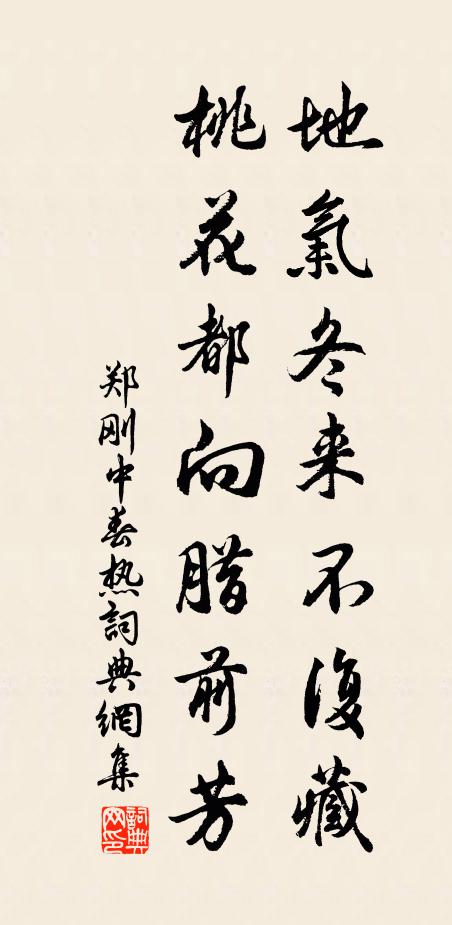 地氣冬来不復藏
桃花都向腊前芳
郑刚中春热詞典網集
詞典网印